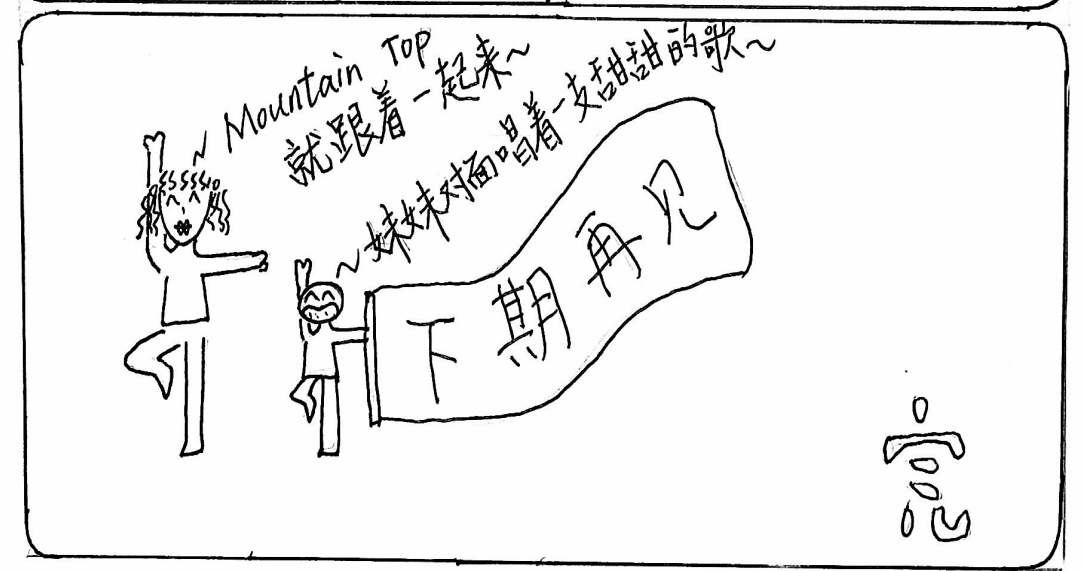 ~ Mountain Top
就跟着一起来~
~妹妹对面唱着一支甜甜的歌~
下期再见